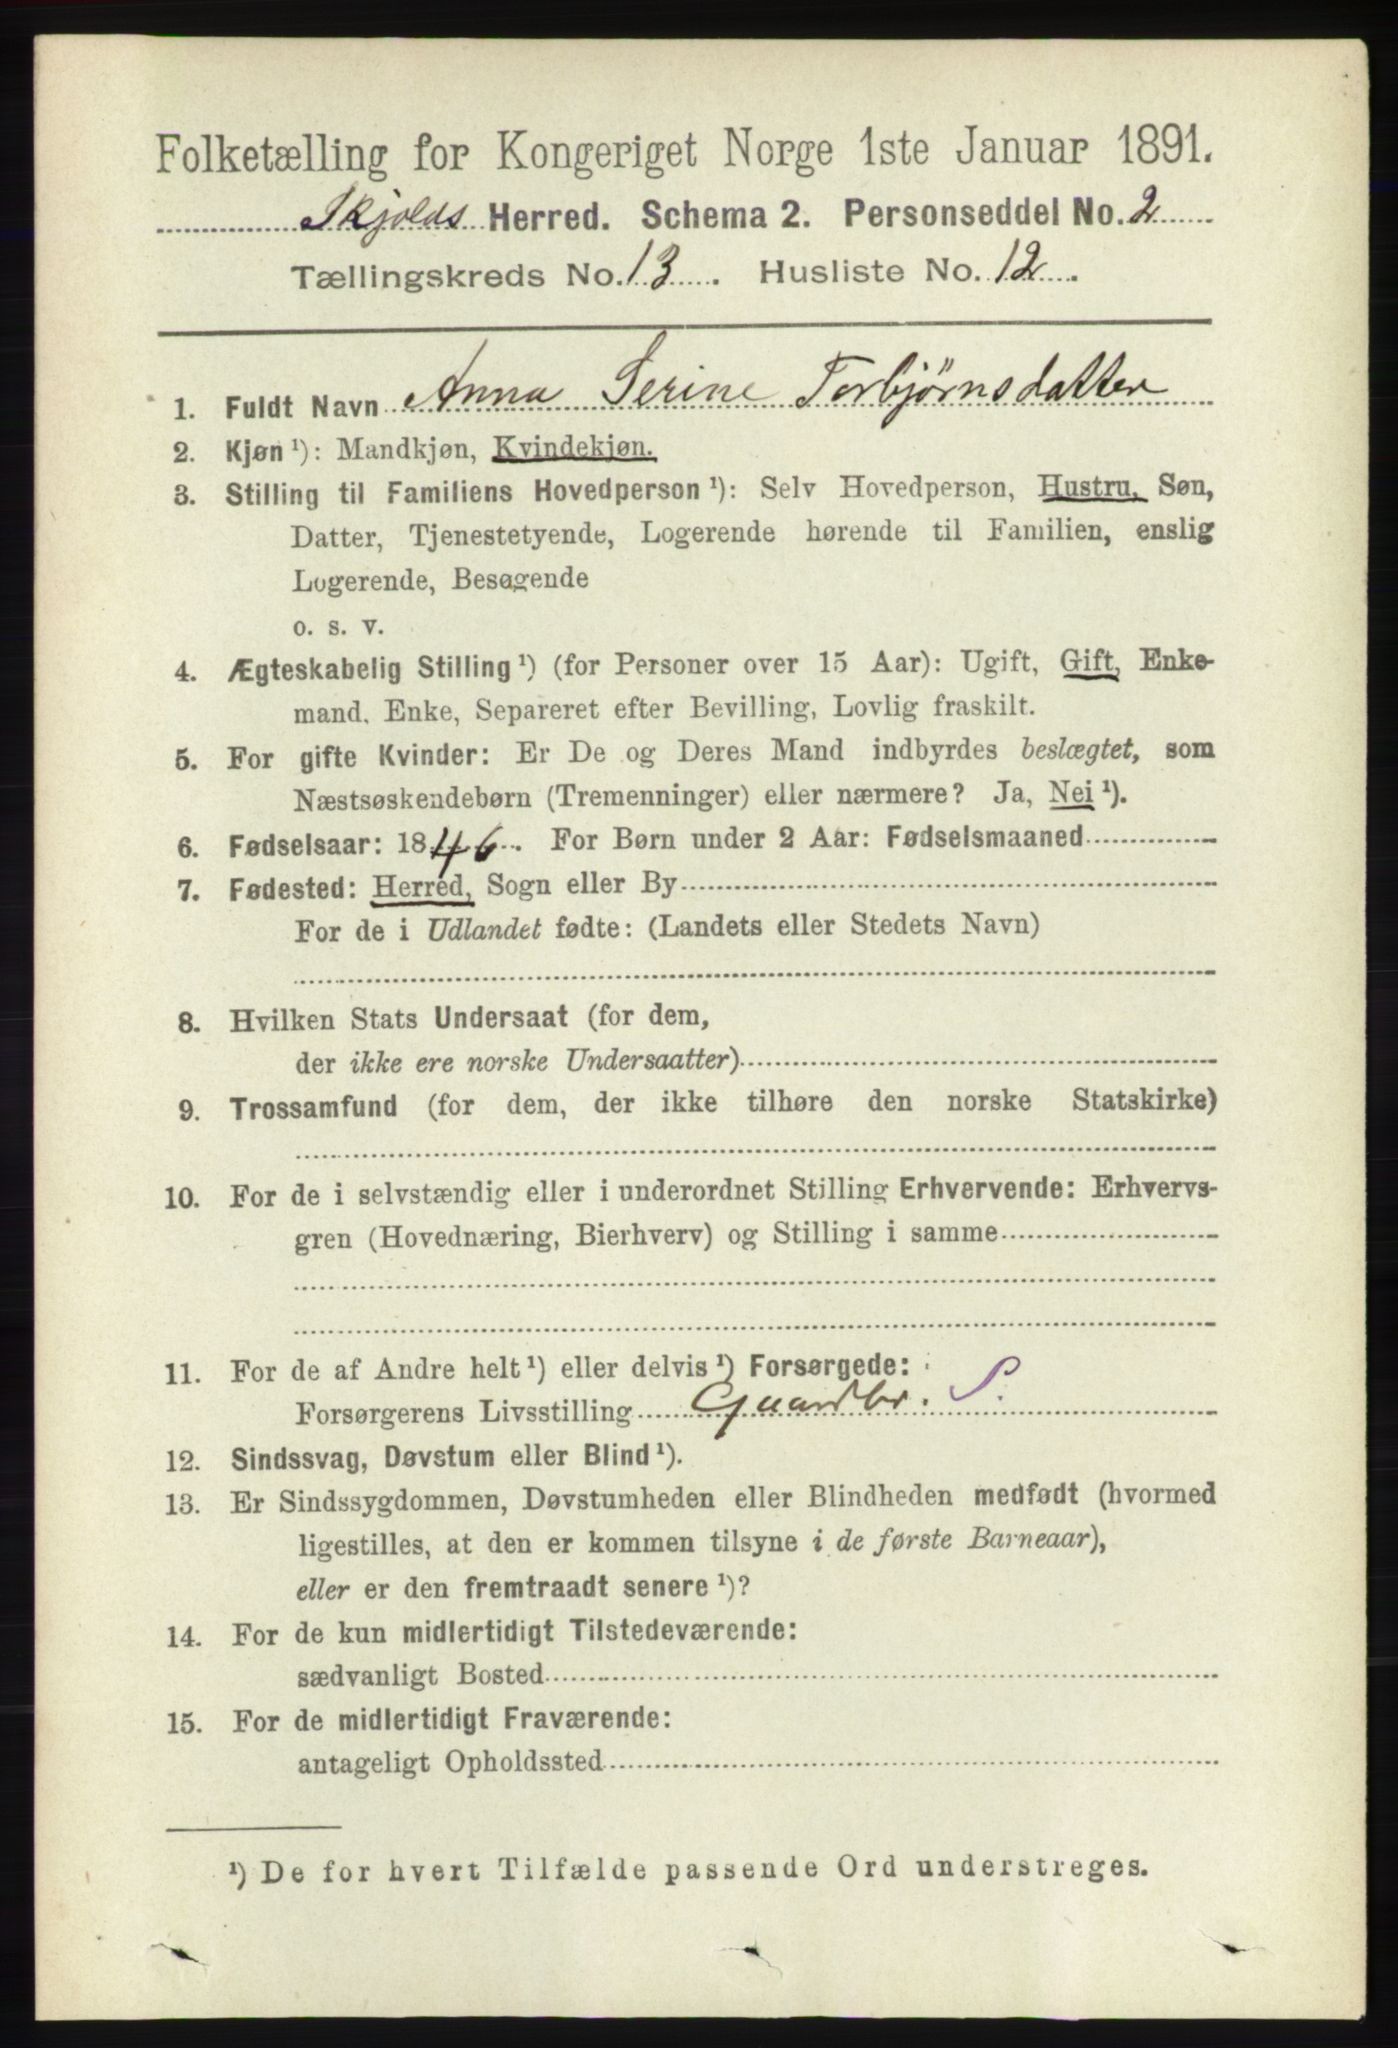 Folketælling for Kongeriget Norge 1ste Januar 1891.
Skjolds Herred. Schema 2. Personseddel No. 2
Tællingskreds No. 13. Husliste No. 12.
1. Fuldt Navn Anna Serine Torbjørnsdatter
2. Kjøn ¹): Mandkjøn, Kvindekjøn.
3. Stilling til Familiens Hovedperson ¹): Selv Hovedperson, Hustru, Søn,
Datter, Tjenestetyende, Logerende hørende til Familien, enslig
Logerende, Besøgende
o. s. v.
4. Ægteskabelig Stilling ¹) (for Personer over 15 Aar): Ugift, Gift, Enke-
mand, Enke, Separeret efter Bevilling, Lovlig fraskilt.
5. For gifte Kvinder: Er De og Deres Mand indbyrdes beslægtet, som
Næstsøskendebørn (Tremenninger) eller nærmere? Ja, Nei ¹).
6. Fødselsaar: 1846. For Børn under 2 Aar: Fødselsmaaned
7. Fødested: Herred, Sogn eller By
For de i Udlandet fødte: (Landets eller Stedets Navn)
8. Hvilken Stats Undersaat (for dem,
der ikke ere norske Undersaatter)
9. Trossamfund (for dem, der ikke tilhøre den norske Statskirke)
10. For de i selvstændig eller i underordnet Stilling Erhvervende: Erhvervs-
gren (Hovednæring, Bierhverv) og Stilling i samme
11. For de af Andre helt ¹) eller delvis ¹) Forsørgede:
Forsørgerens Livsstilling Gaardbr. S.
12. Sindssvag, Døvstum eller Blind ¹).
13. Er Sindssygdommen, Døvstumheden eller Blindheden medfødt (hvormed
ligestilles, at den er kommen tilsyne i de første Barneaar),
eller er den fremtraadt senere ¹)?
14. For de kun midlertidigt Tilstedeværende:
sædvanligt Bosted
15. For de midlertidigt Fraværende:
antageligt Opholdssted
¹) De for hvert Tilfælde passende Ord understreges.